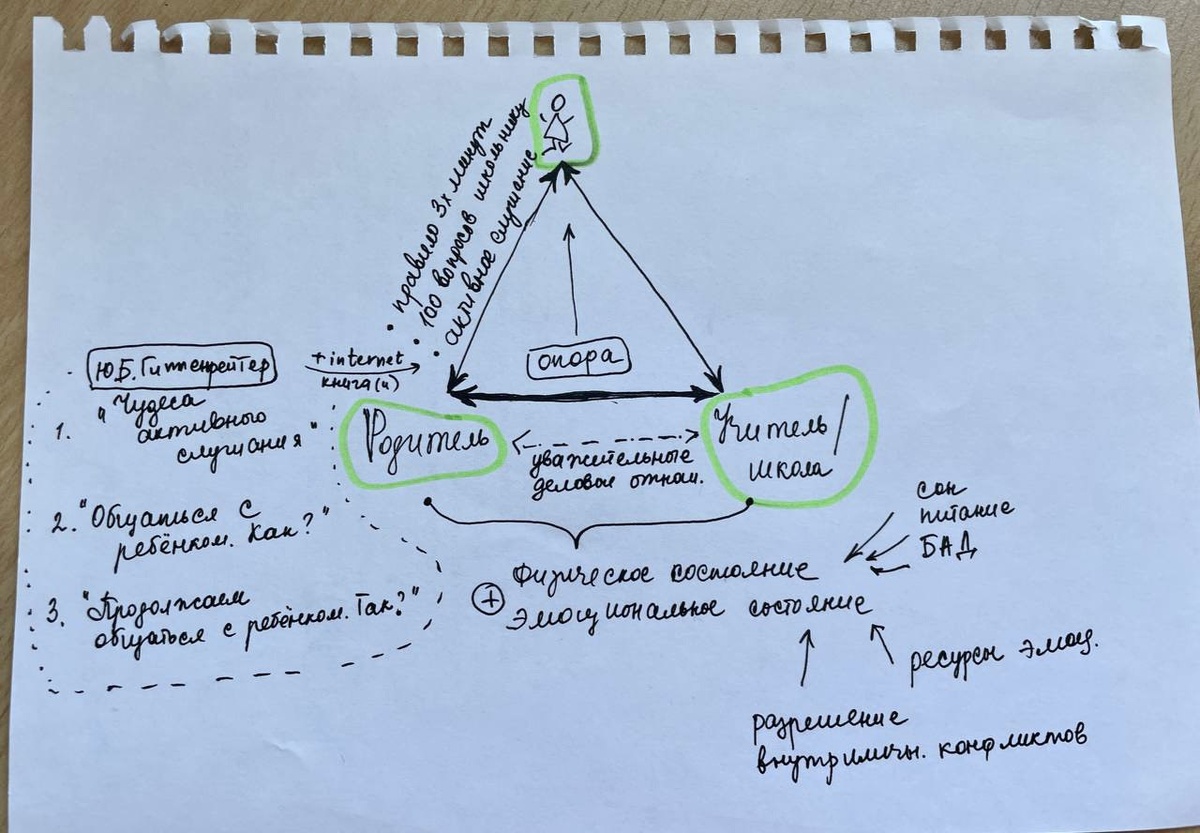 • правило 3х минут
• 100 вопросов школьнику
• активное слушание
опора
Ю.Б. Гиппенрейтер
+ internet
книга(и)
1. "Чудеса
активного
слушания"
2. "Общаться с
ребёнком. Как?"
3. "Продолжаем
общаться с ребёнком. Так?"
Родитель
Учитель/
школа
уважительные
деловые отнош.
сон
питание
БАД
Физическое состояние
+
Эмоциональное состояние
ресурсы эмоц.
разрешение
внутрличн. конфликтов